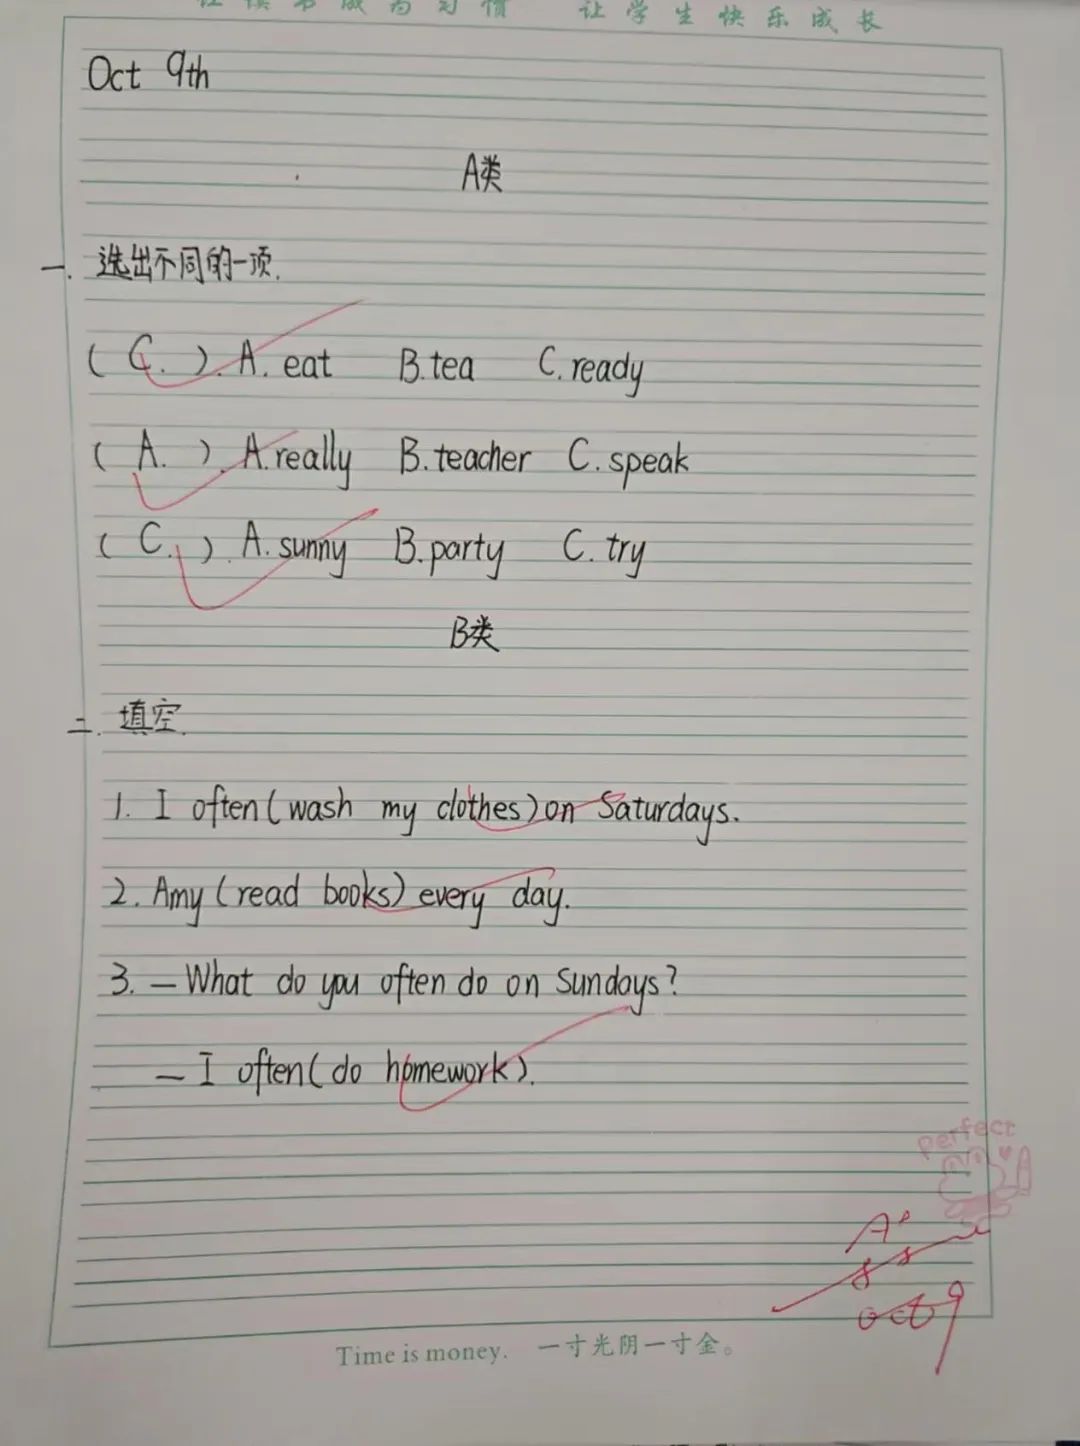 让读书成为习惯 让学生快乐成长
Oct 9th
A类
一. 选出不同的一项.
( C. ). A. eat B. tea C. ready
( A. ). A. really B. teacher C. speak
( C. ). A. sunny B. party C. try
B类
二. 填空.
1. I often (wash my clothes) on Saturdays.
2. Amy (read books) every day.
3. — What do you often do on Sundays?
— I often (do homework).
perfect
A+
oct 9
Time is money. 一寸光阴一寸金。